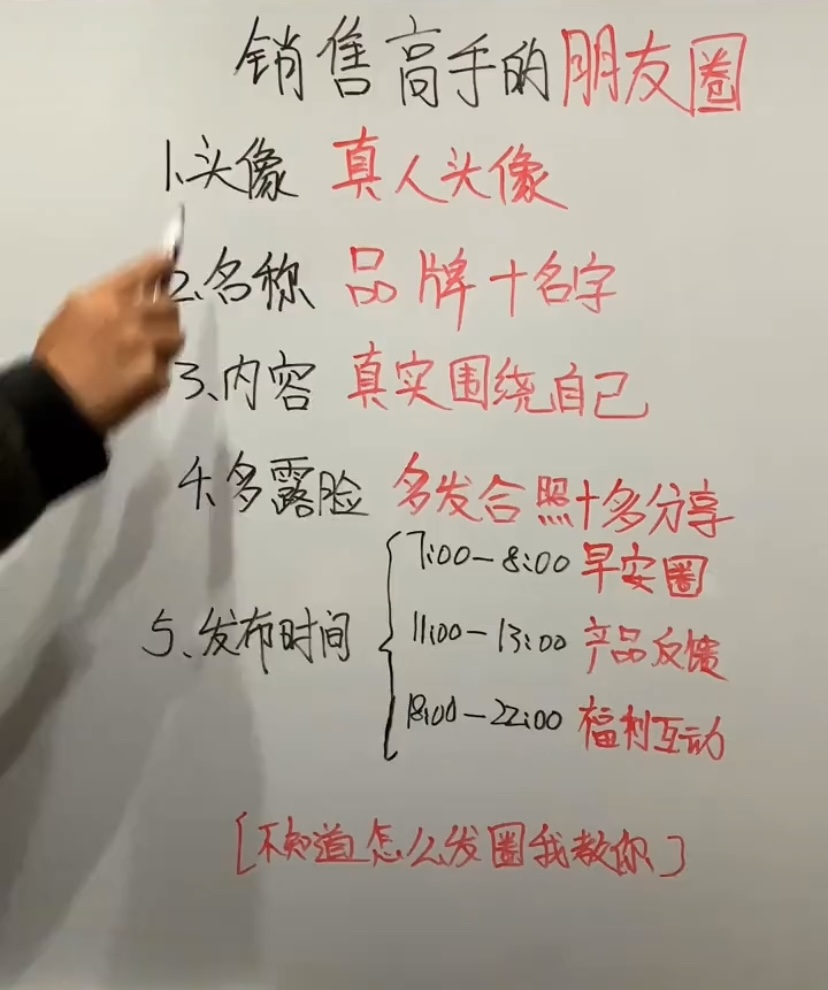 销售高手的朋友圈
1、头像 真人头像
2、名称 品牌+名字
3、内容 真实围绕自己
4、多露脸 多发合照+多分享
7:00-8:00 早安圈
5、发布时间 11:00-13:00 产品反馈
18:00-22:00 福利互动
[不知道怎么发圈我教你]